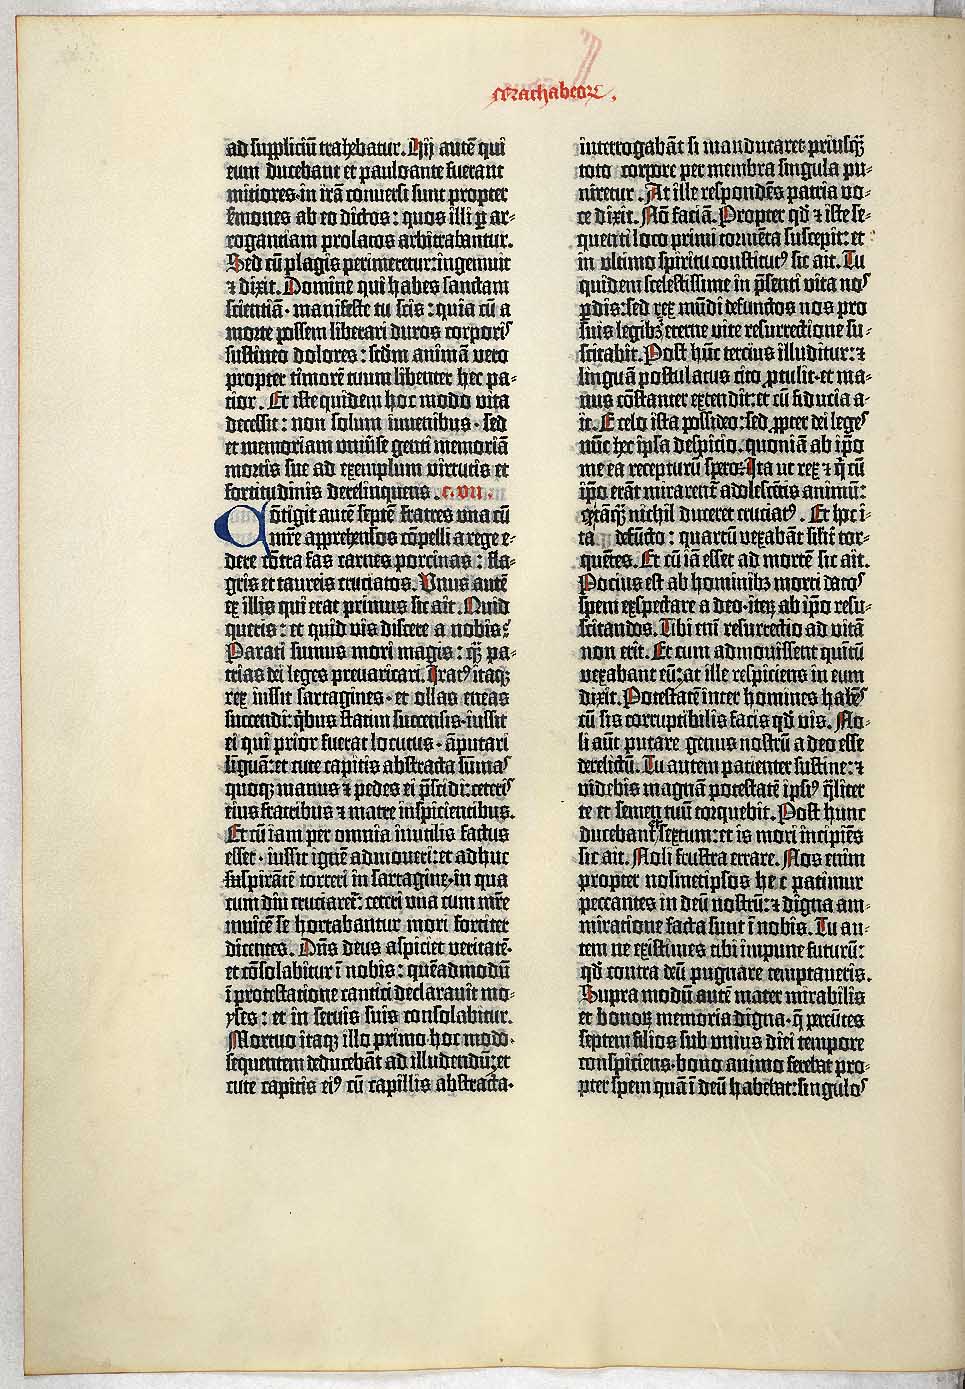 Machabeorꝝ.
ad suppliciū trahebatur. Hij autē qui
eum ducebant et pauloante fuerant
mitiores·in irā conversi sunt propter
s̄mones ab eo dictos: quos illi ꝑ ar-
rogantiam prolatos arbitrabantur.
Sed cū plagis perimeretur:ingemuit
⁊ dixit. Domine qui habes sanctam
scientiā·manifeste tu scis: quia cū a
morte possem liberari duros corporis
sustineo dolores: scd̄m animā vero
propter timorē tuum libenter hec pa-
tior. Et iste quidem hoc modo vita
decessit: non solum iuvenibus·sed
et memoriam univ̄se genti memoriā
mortis sue ad exemplum virtutis et
fortitudinis derelinquens. c. vii.
Cōtigit autē septē fratres una cū
mr̄e apprehensos cōpelli a rege e-
dere cōtra fas carnes porcinas: fla-
gris et taureis cruciatos. Unus autē
ex illis qui erat primus sic ait. Quid
queris: et quid vis discere a nobis?
Parati sumus mori magis: qꝫ̄ pa-
trias dei leges prevaricari. Iratꝰ itaqꝫ
rex iussit sartagines·et ollas eneas
succendi:q̄bus statim succensis·iussit
ei qui prior fuerat locutus·āputari
liguā:et cute capitis abstracta sūmas
quoqꝫ manus ⁊ pedes ei p̄scidi:ceteris
eius fratribus ⁊ matre inspicientibus.
Et cū iam per omnia inutilis factus
esset·iussit ignē admoveri:et adhuc
suspirātē torreri in sartagine·in qua
cum diu cruciaret̄: ceteri una cum mr̄e
invicē se hortabantur mori fortiter
dicentes. Dn̄s deus aspiciet veritatē·
et cōsolabitur ī nobis: quēadmodū
ī protestatione cantici declaravit mo-
yses: et in servis suis consolabitur.
Mortuo itaqꝫ illo primo hoc modo·
sequentem deducebāt ad illudendū:et
cute capitis eiꝰ cū capillis abstracta·
interrogabāt si manducaret·priusqꝫ̄
toto corpore per membra singula pu-
niretur. At ille respondēs patria vo-
ce dixit. Nō faciā. Propter qd̄ ⁊ iste se-
quenti loco primi tormēta suscepit: et
in ultimo spiritu constitutꝰ sic ait. Tu
quidem scelestissime in p̄senti vita nos
ꝑdis:sed rex mūdi defunctos nos pro
suis legibꝫ eterne vite resurrectione su-
scitabit. Post hūc tercius illuditur:⁊
linguā postulatus cito ꝓtulit·et ma-
nus cōstanter extendit:et cū fiducia a-
it. E celo ista possideo:sed ꝓpter dei leges
nūc hec ipsa despicio·quoniā ab ip̄o
me ea recepturū spero. Ita ut rex ⁊ q̄ cū
ip̄o erāt mirarent̄ adolescētis animū:
qꝫ tāqꝫ̄ nichil duceret cruciatꝰ. Et hoc i-
ta defūcto: quartū vexabāt sil̄it̄ tor-
quētes. Et cū iā esset ad mortē sic ait.
Pocius est ab hominibꝫ morti datos
spem exspectare a deo·iteꝝ ab ip̄o resu-
scitandos. Tibi eni resurrectio ad vitā
non erit. Et cum admovissent quītū
vexabant eū:at ille respiciens in eum
dixit. Potestatē inter homines habēs
cū sis corruptibilis facis qd̄ vis. No-
li aūt putare genus nostrū a deo esse
derelictū. Tu autem patienter sustine:⁊
videbis magnā potestatē ipsiꝰ q̄liter
te et semen tuū torquebit. Post hunc
ducebant sextum:et is mori incipiēs
sic ait. Noli frustra errare. Nos enim
propter nosmetipsos hec patimur
peccantes in deū nostrū:⁊ digna am-
miratione facta sunt ī nobis. Tu au-
tem ne existimes tibi impune futurū:
qd̄ contra deū pugnare temptaveris.
Supra modū autē mater mirabilis
et bonoꝝ memoria digna·q̄ pereūtes
septem filios sub unius diei tempore
conspiciens·bono animo ferebat pro-
pter spem quā ī deū habebat:singulos